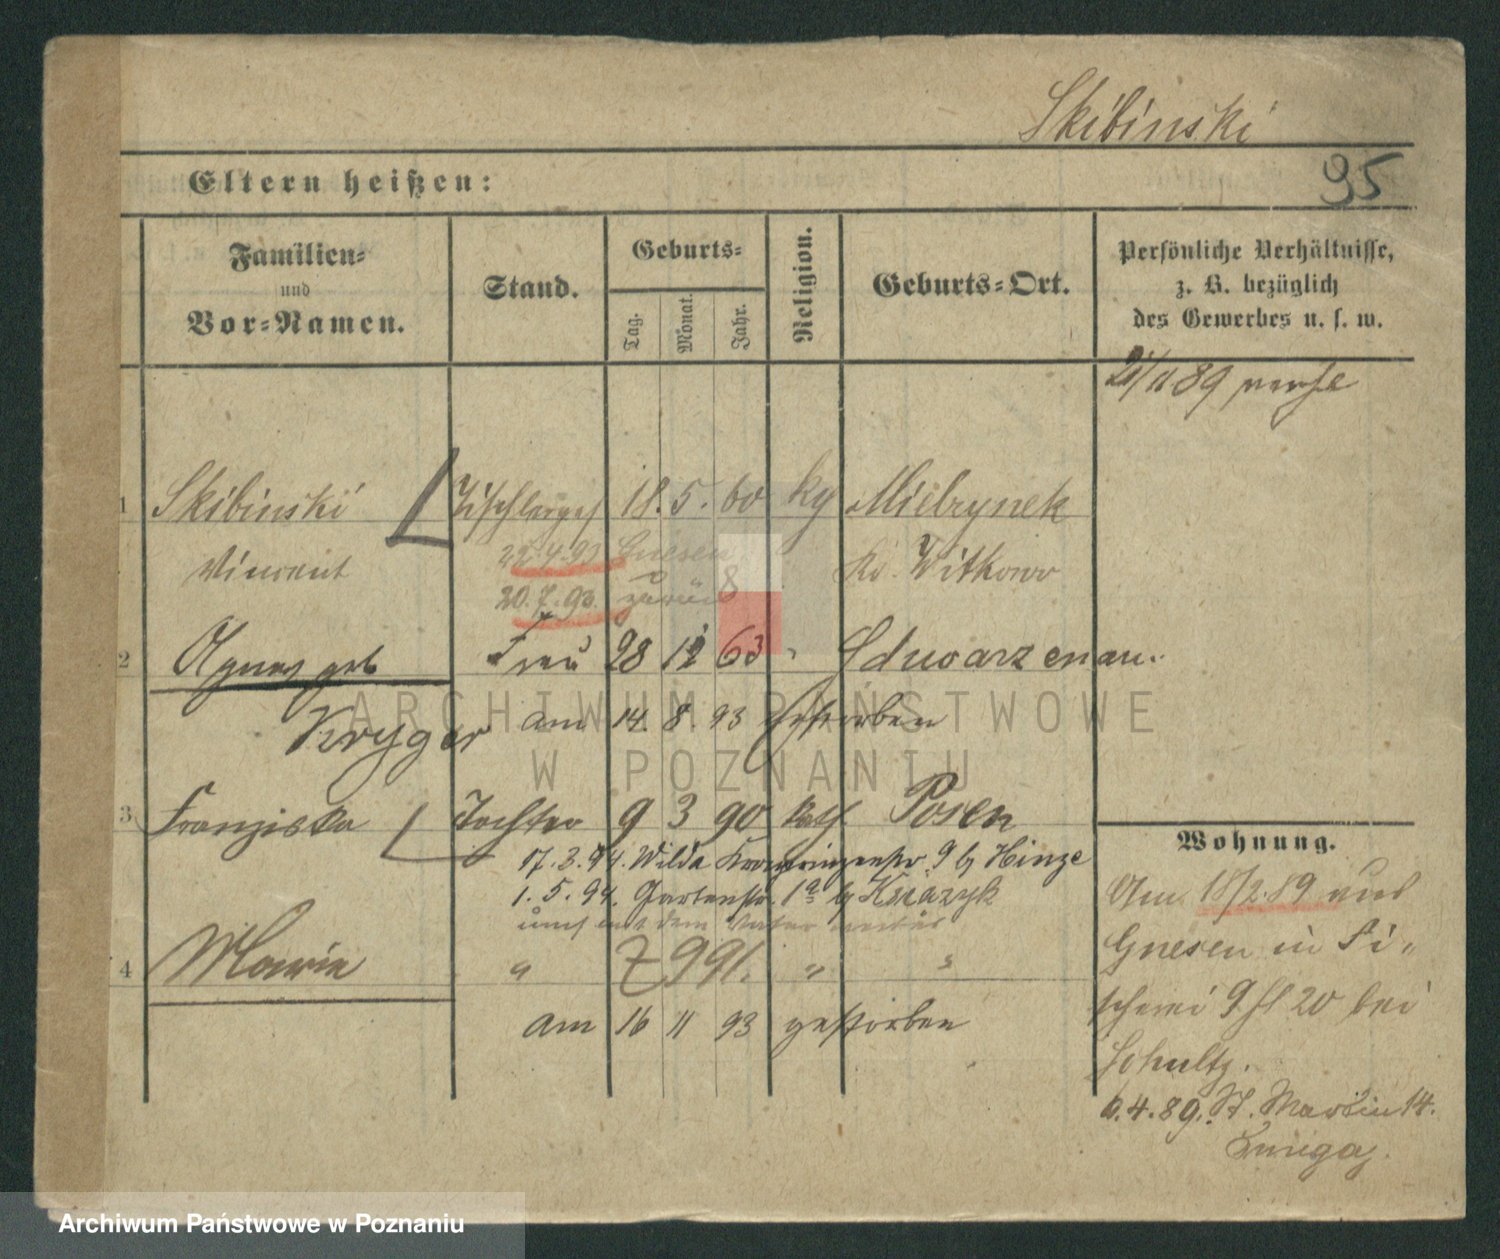 Skibinski
95
Eltern heißen:
Familien=
und
Vor=Namen.
Stand.
Geburts=
Tag.
Monat.
Jahr.
Religion.
Geburts=Ort.
Persönliche Verhältnisse,
z. B. bezüglich
des Gewerbes u. s. w.
89
1 Skibinski Tischlerges 18. 5. 60 kg Mielzynek
Vincent 22.4.93 Gnesen Kr. Witkowo
20.7.93. zurück
2 Agnes geb Frau 28 12 63 " Schwarzenau.
Kryger am 14. 8. 93 gestorben
3 Franziska Tochter 9 3 90 kath Posen
17.3.94. Wilda Kronprinzenstr. 9 b/ Hinze
1.5.94. Gartenstr. 1a b/
mit dem Vater weiter
4 Marie " 7 9 91. " "
am 16 11 93 gestorben
Wohnung.
Am 18/2.89 aus
Gnesen in Fi=
scherei 9 20 bei
Schultz.
6.4.89. St. Martin 14.
ARCHIWUM PAŃSTWOWE
W POZNANIU
Archiwum Państwowe w Poznaniu